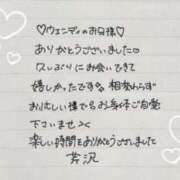 ♡ウェンディのお兄様♡
ありがとうございました♡
久しぶりにお会いできて
嬉しかったです 相変わらず
お忙しい様でお身体ご自愛
下さいませ
楽しい時間をありがとうございました
芹沢